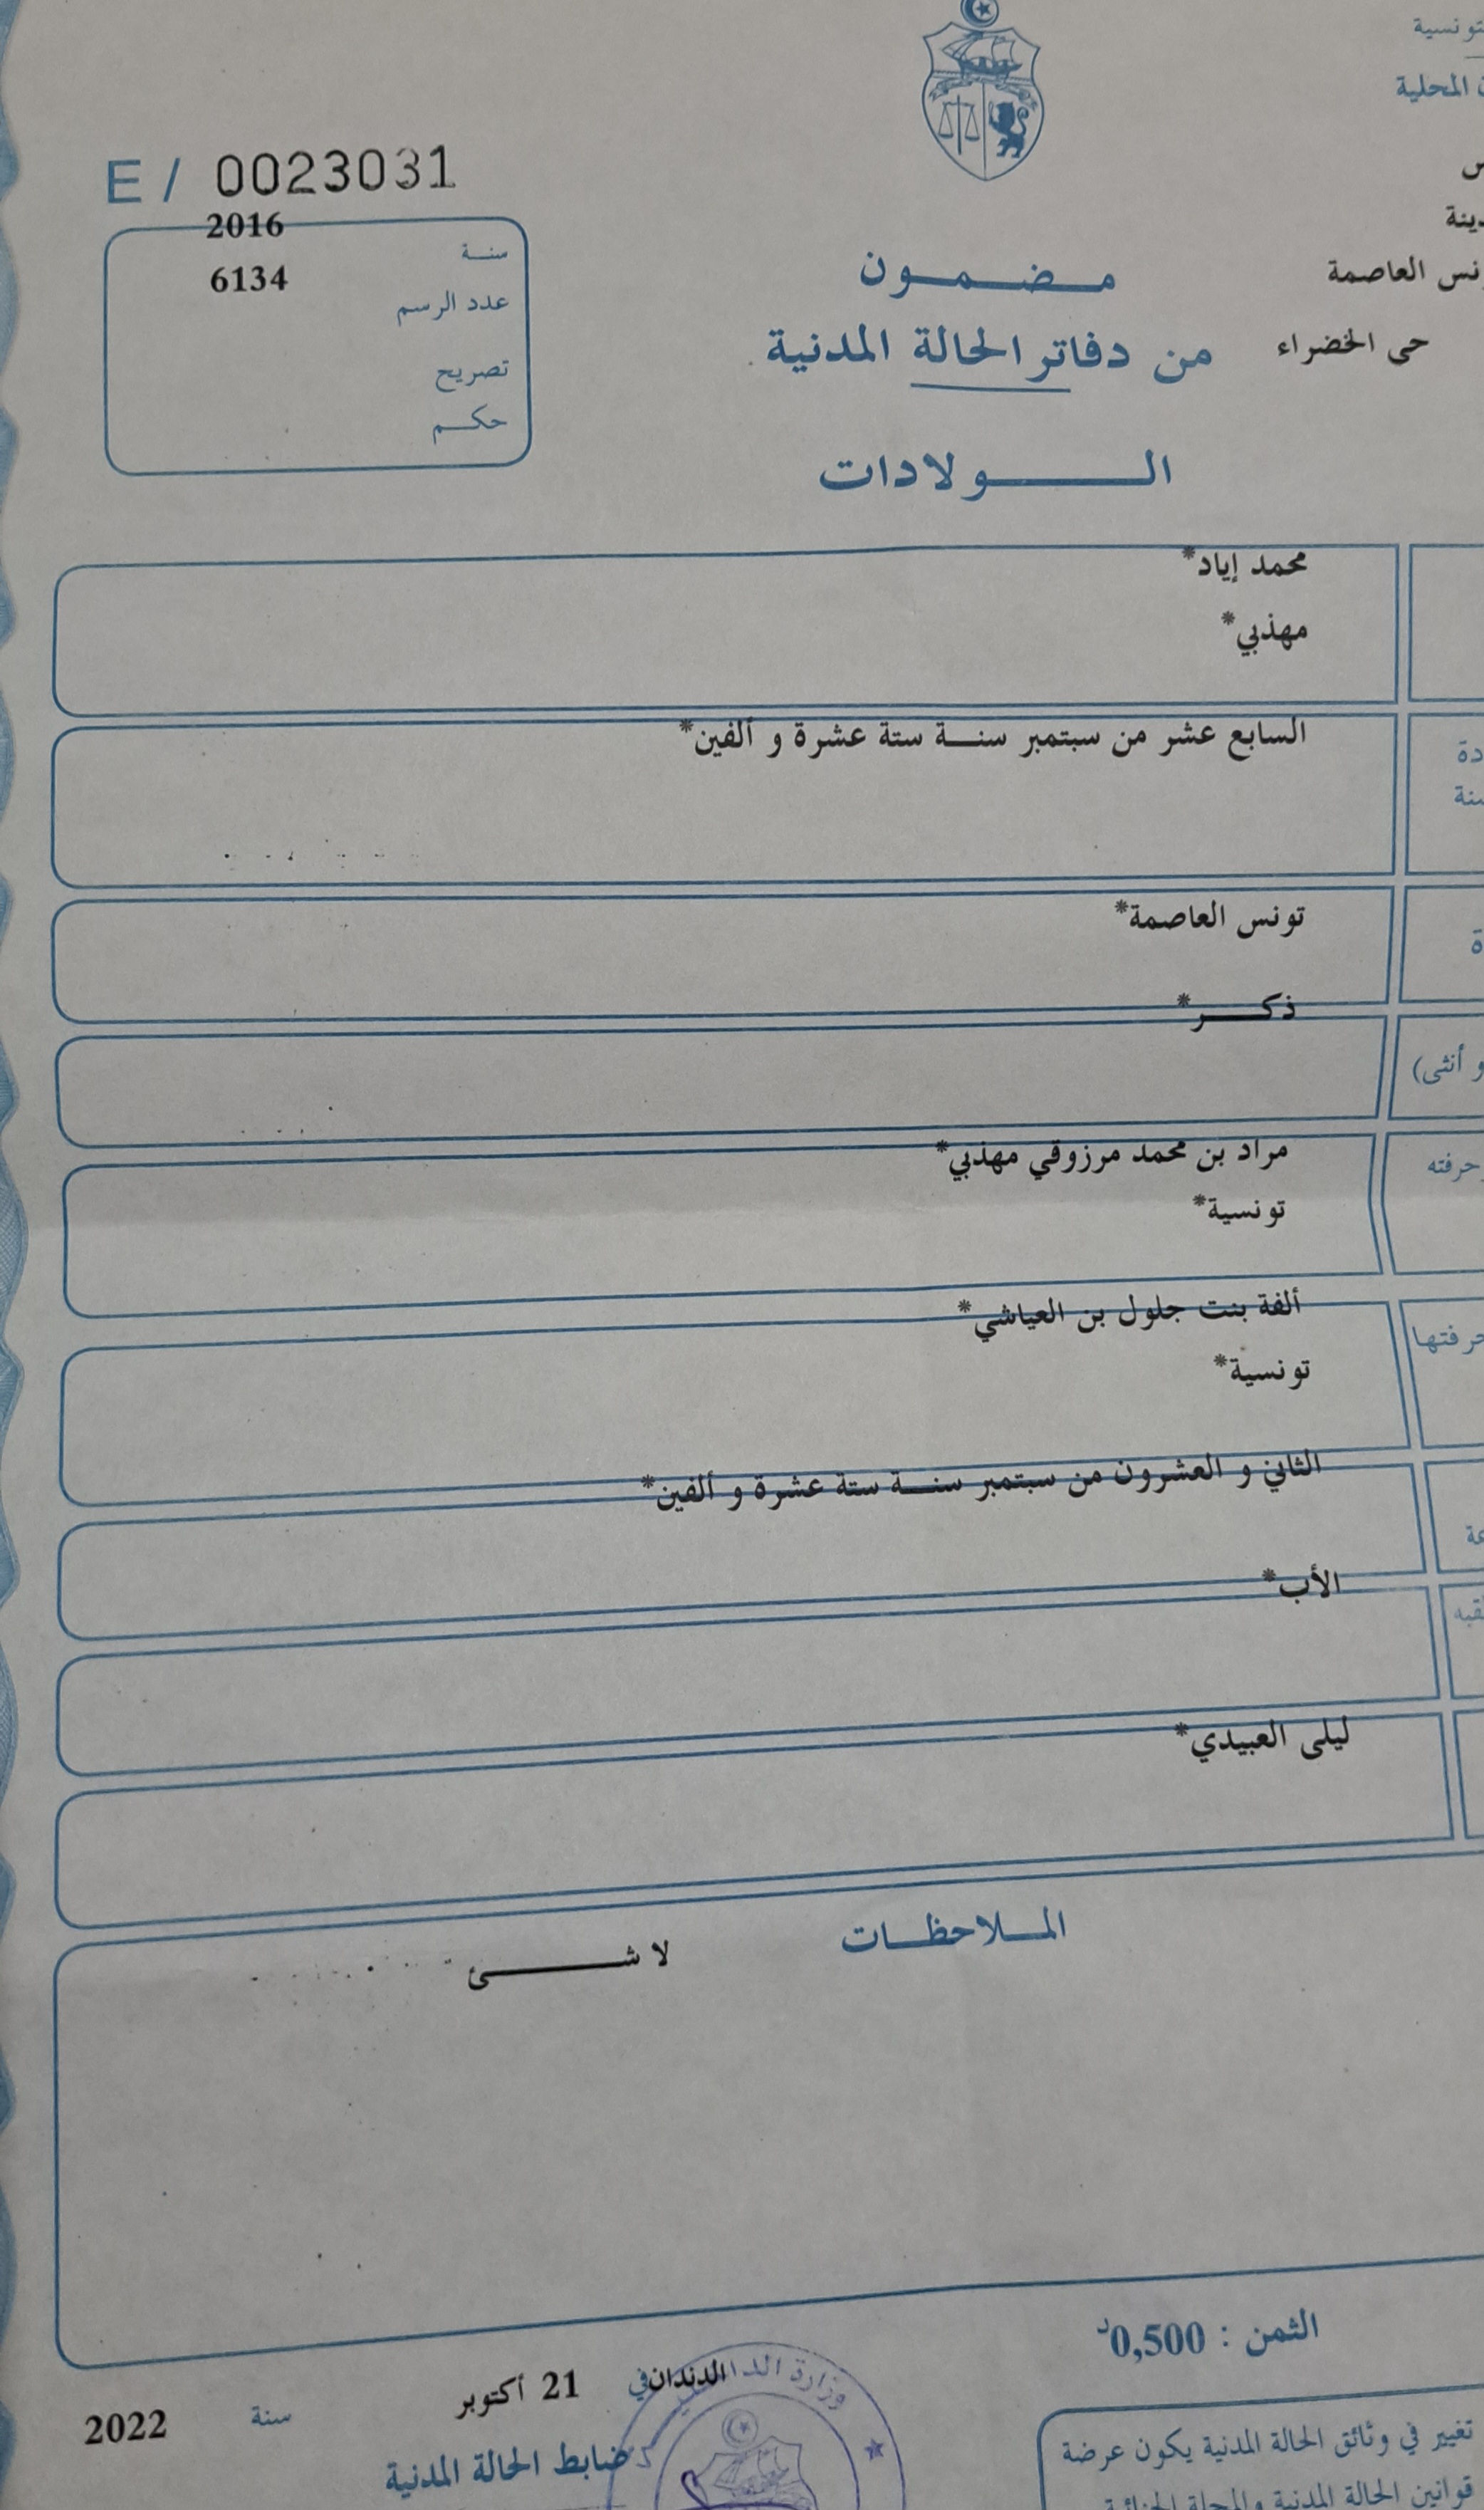 المحلية
E / 0023031
2016
سنة
6134
عدد الرسم
تصريح
حكم
العاصمة
حى الخضراء
مضمون
من دفاتر الحالة المدنية
الولادات
محمد إياد*
مهذبي*
السابع عشر من سبتمبر سنة ستة عشرة و ألفين*
تونس العاصمة*
ذكر*
و أنثى)
مراد بن محمد مرزوقي مهذبي*
تونسية*
ألفة بنت جلول بن العياشي*
تونسية*
الثاني و العشرون من سبتمبر سنة ستة عشرة و ألفين*
الأب*
ليلى العبيدي*
الملاحظات
لا شئ
الثمن : 0,500د
الدندان في 21 أكتوبر سنة 2022
ضابط الحالة المدنية
وزارة
تغيير في وثائق الحالة المدنية يكون عرضة
قوانين الحالة المدنية والمجلة الجنائية